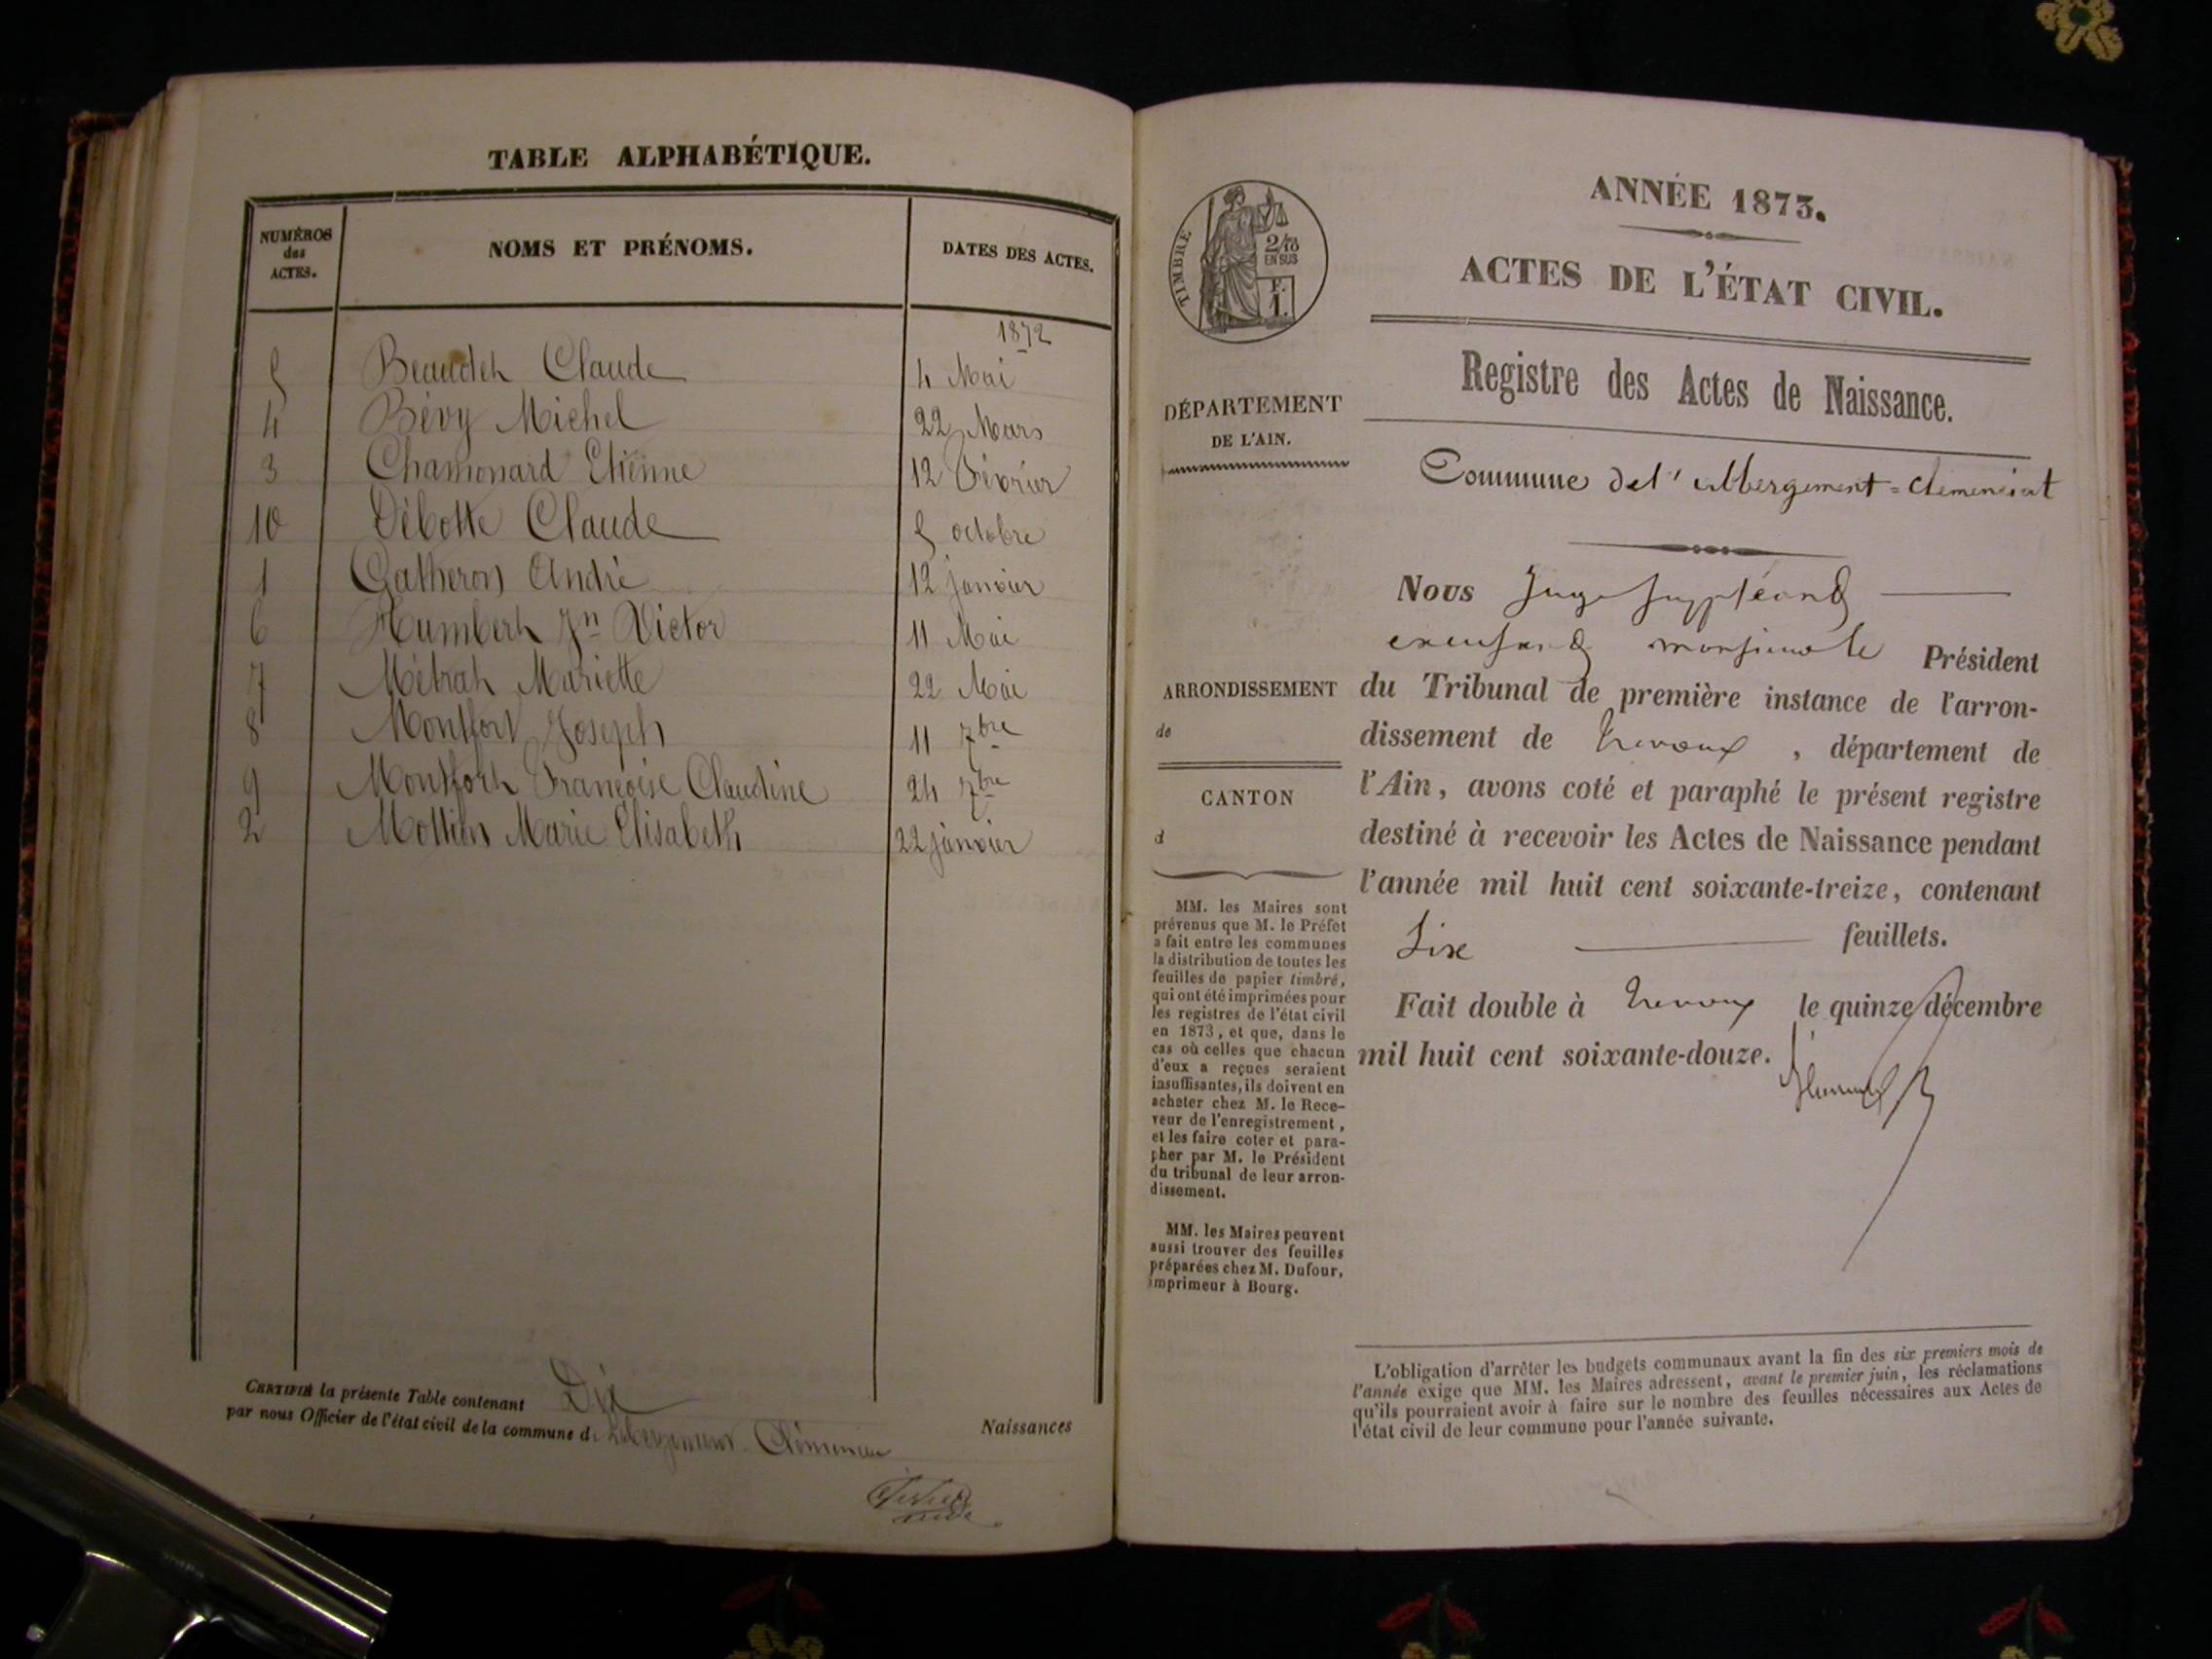 TABLE ALPHABÉTIQUE.
NUMÉROS des ACTES.
NOMS ET PRÉNOMS.
DATES DES ACTES.
1872
5 Beaudet Claude 4 Mai
4 Bévy Michel 22 Mars
3 Chamonard Etienne 12 Février
10 Débotte Claude 5 octobre
1 Gatheron André 12 janvier
6 Humbert Jn Victor 11 Mai
7 Métrat Mariette 22 Mai
8 Montfort Joseph 11 7bre
9 Montfort Françoise Claudine 24 7bre
2 Mottin Marie Elisabeth 22 janvier
CERTIFIÉ la présente Table contenant Dix Naissances
par nous Officier de l'état civil de la commune d
TIMBRE
2/10
EN SUS
F.
1.
DÉPARTEMENT
DE L'AIN.
ARRONDISSEMENT
de
CANTON
d
MM. les Maires sont
prévenus que M. le Préfet
a fait entre les communes
la distribution de toutes les
feuilles de papier timbré,
qui ont été imprimées pour
les registres de l'état civil
en 1873, et que, dans le
cas où celles que chacun
d'eux a reçues seraient
insuffisantes, ils doivent en
acheter chez M. le Rece-
veur de l'enregistrement,
et les faire coter et para-
pher par M. le Président
du tribunal de leur arron-
dissement.
MM. les Maires peuvent
aussi trouver des feuilles
préparées chez M. Dufour,
imprimeur à Bourg.
ANNÉE 1873.
ACTES DE L'ÉTAT CIVIL.
Registre des Actes de Naissance.
Commune de l'abbergement=clemenciat
Nous Juge suppléant
Président
du Tribunal de première instance de l'arron-
dissement de Trevoux, département de
l'Ain, avons coté et paraphé le présent registre
destiné à recevoir les Actes de Naissance pendant
l'année mil huit cent soixante-treize, contenant
Six feuillets.
Fait double à Trevoux le quinze décembre
mil huit cent soixante-douze.
L'obligation d'arrêter les budgets communaux avant la fin des six premiers mois de
l'année exige que MM. les Maires adressent, avant le premier juin, les réclamations
qu'ils pourraient avoir à faire sur le nombre des feuilles nécessaires aux Actes de
l'état civil de leur commune pour l'année suivante.